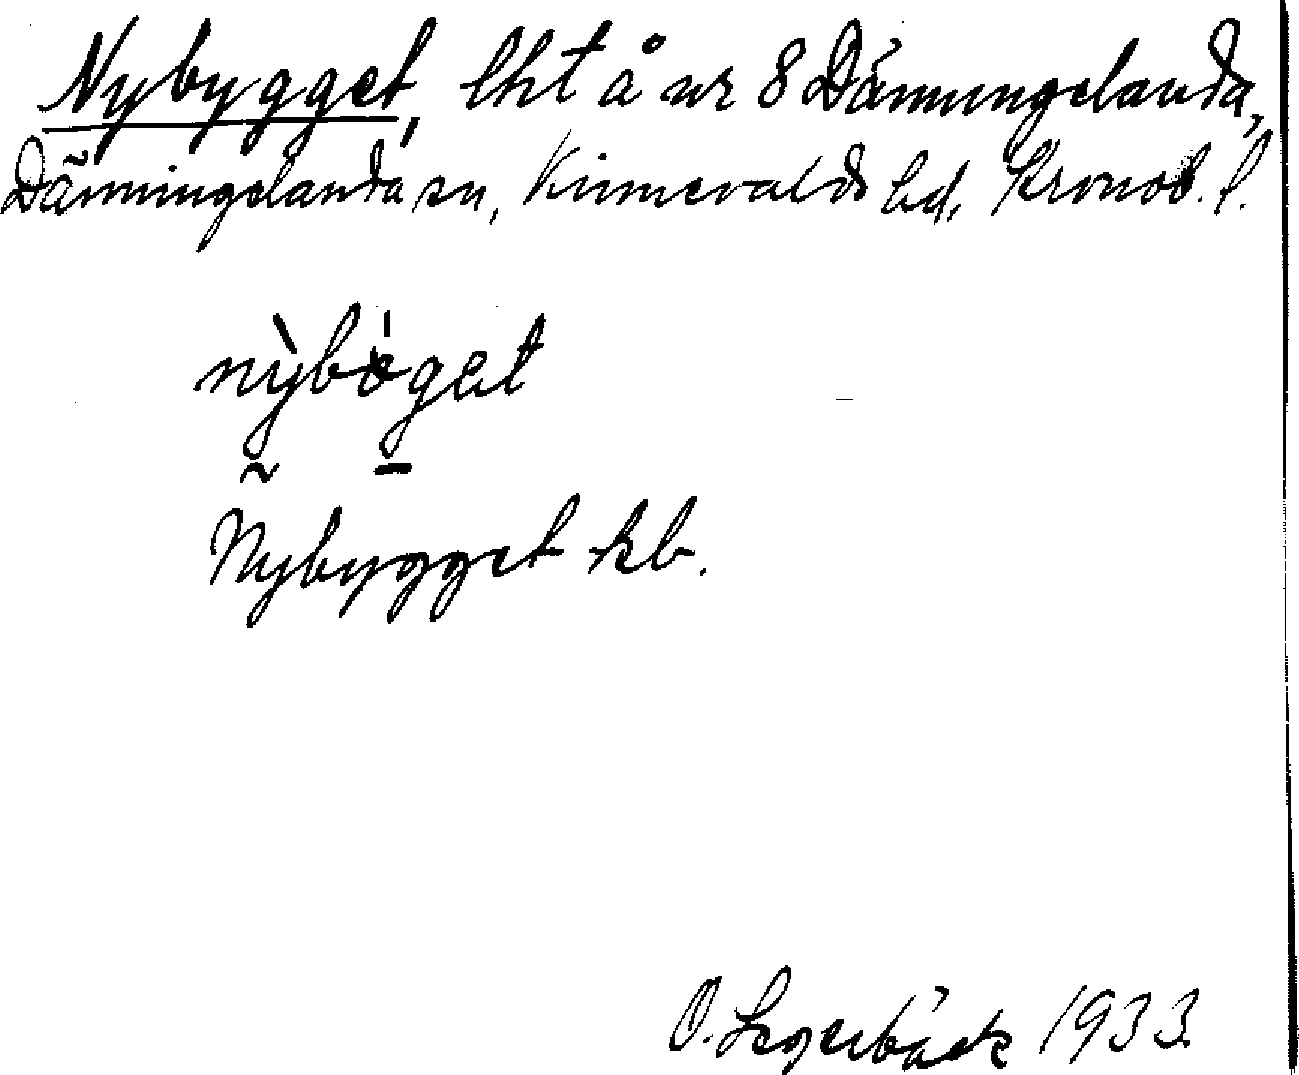 Nybygget, lht å nr 8 Dänningelanda,
Dänningelanda sn, Kinnevalds hd, Kronob. l.
nỳbȯget
Nybygget kb.
O. Segerbäck 1933.